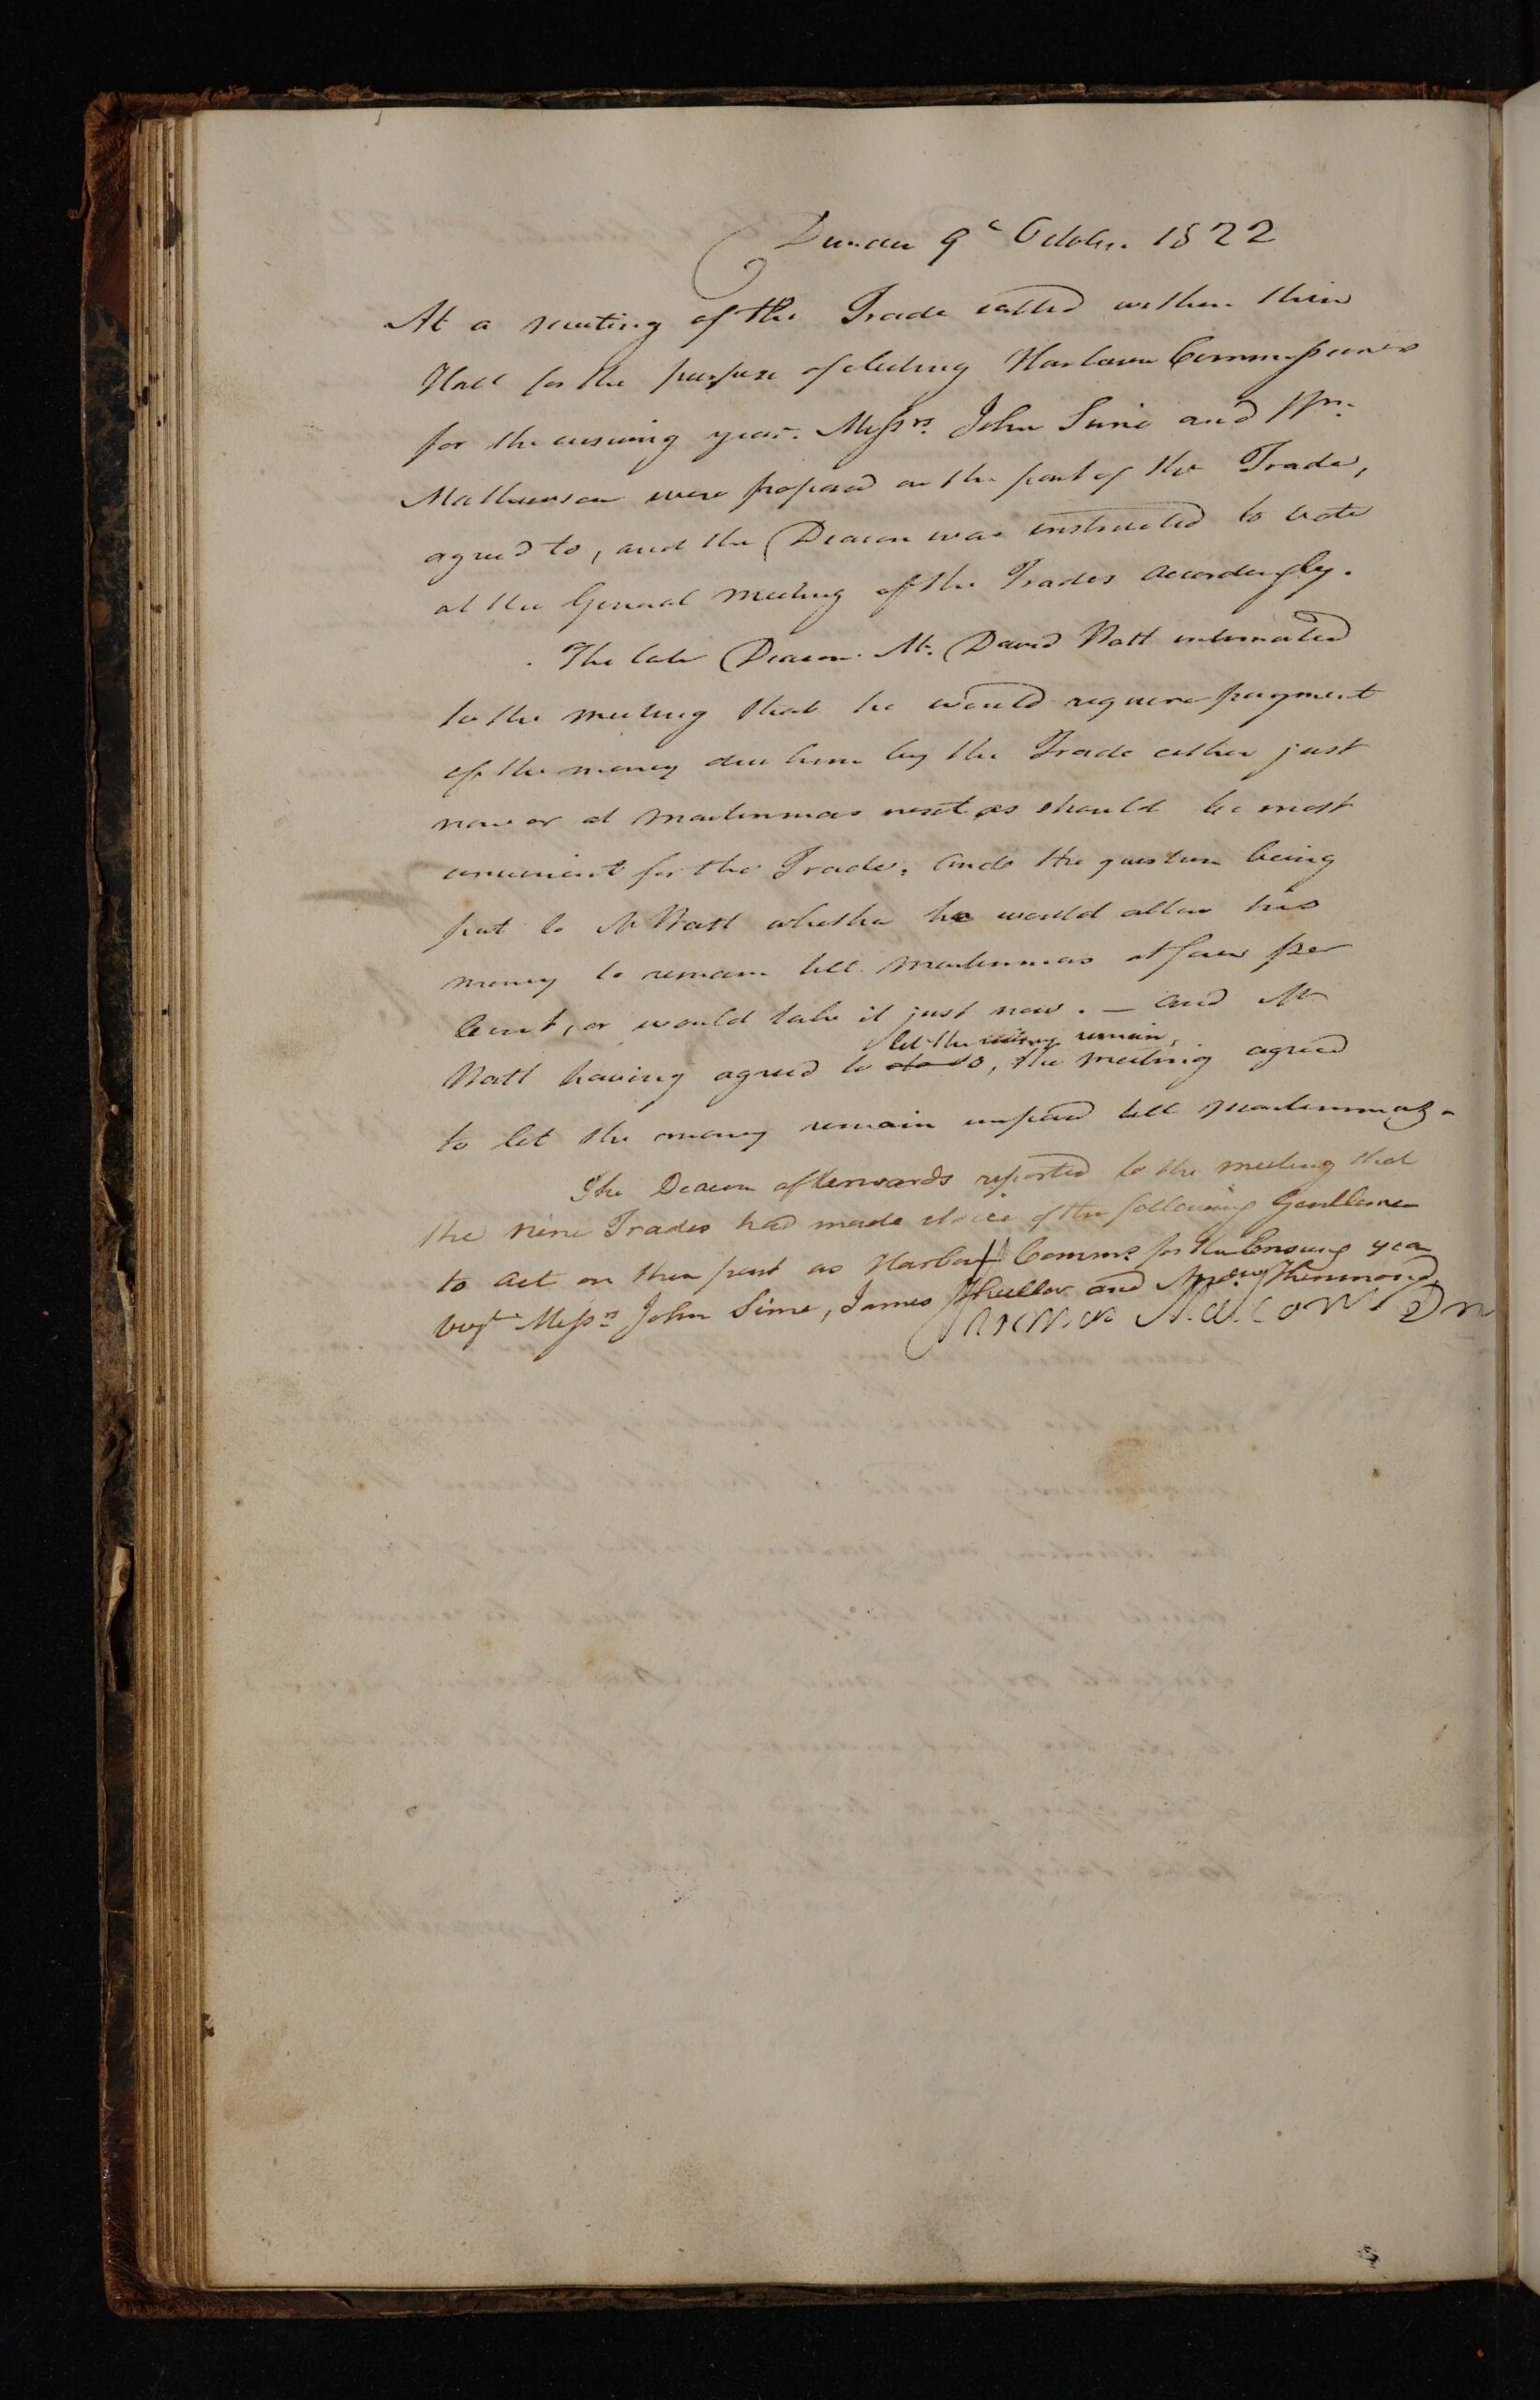 Dundee 9th October 1822
At a meeting of the Trade called within their
Hall for the purpose of electing Harbour Commissioners
for the ensuing year. Messrs. John Sime and Wm.
Mathewson were proposed on the part of the Trade,
agreed to, and the Deacon was instructed to vote
at the General Meeting of the Trades accordingly.
The late Deacon Mr. David Watt intimated
to the meeting that he would require payment
of the money due him by the Trade either just
now or at Martinmas next as should be most
convenient for the Trade, and the question being
put to Mr Watt whether he would allow his
money to remain till Martinmas at four per
Cent, or would take it just now. — and Mr
let the money remain,
Watt having agreed to do so, the meeting agreed
to let the money remain unpaid till Martinmas.
The Deacon afterwards reported to the meeting that
the Nine Trades had made choice of the following Gentlemen
to act on their part as Harbour Commrs for the Ensuing year
vizt Messrs John Sime, James and
Thomas Malcom Dn